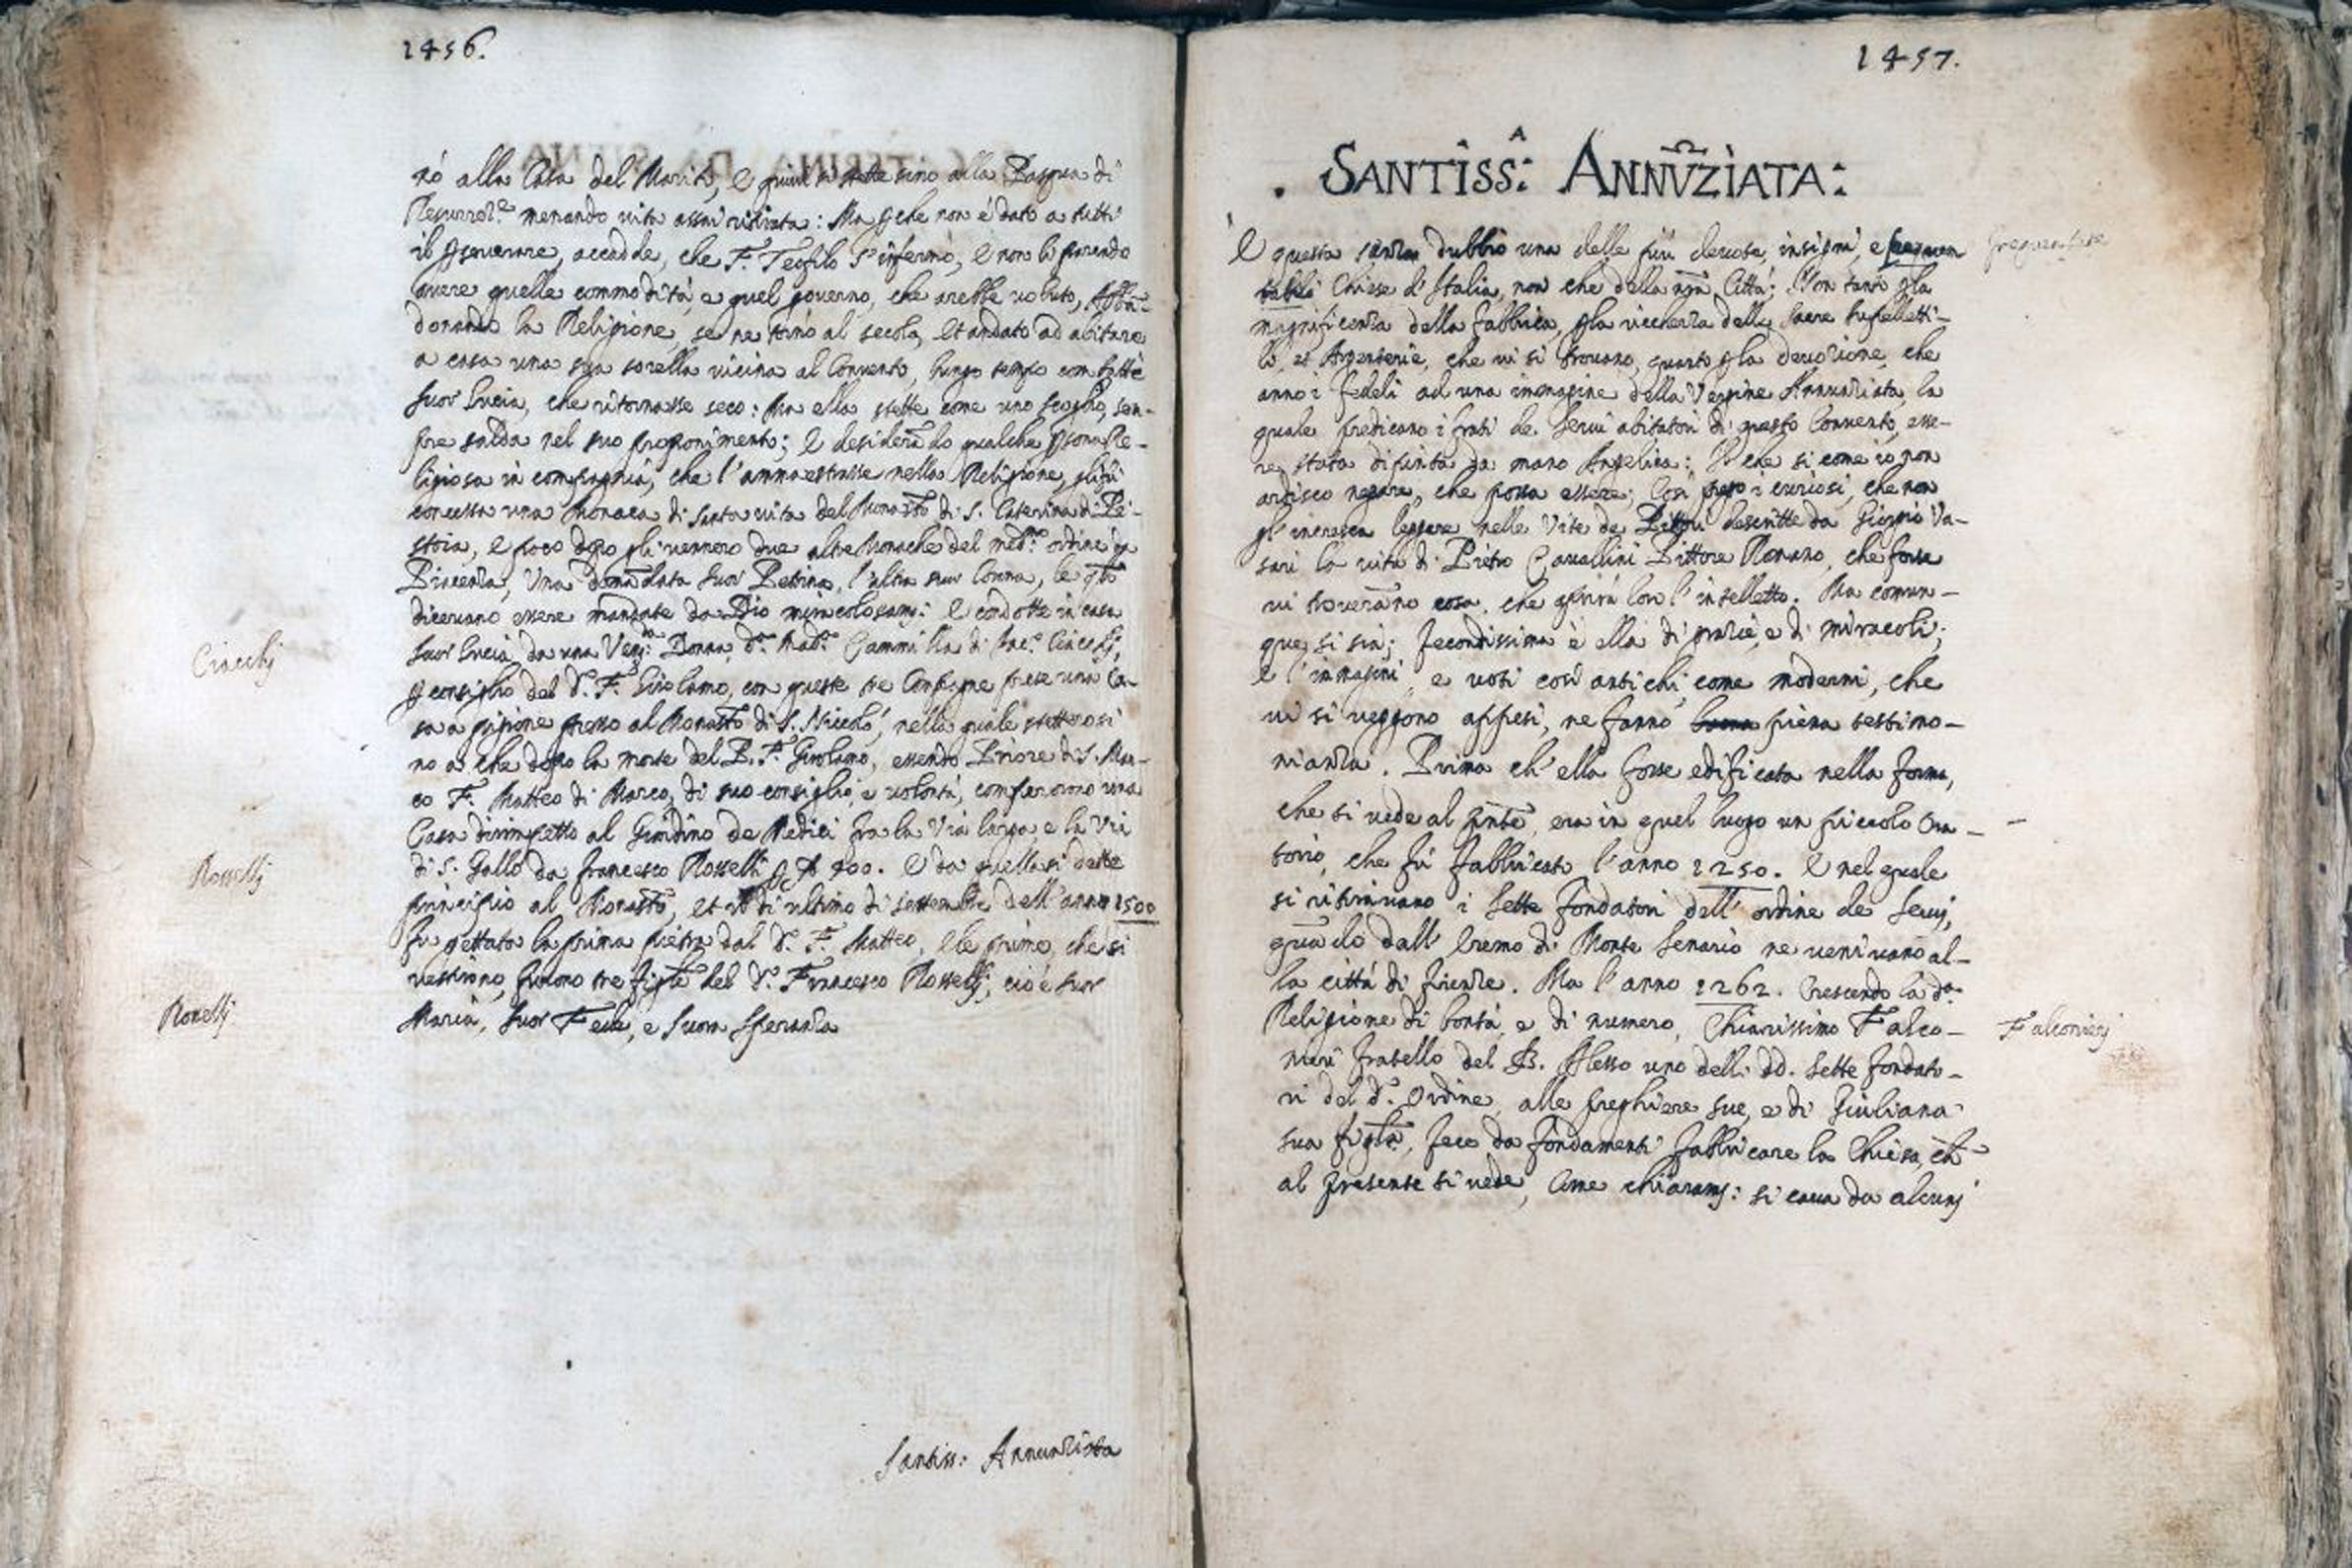 1456.
nó alla Casa del Marito, e quivi si stette sino alla Pasqua di
Resurrone menando vita assai ritirata: Ma pche non é dato a tutti
il pseverare, accadde, che F. Teofilo s'infermò, e non li parendo
avere quelle commodità, e quel governo, che arebbe voluto, Abbā-
donando la Religione, se ne tornò al secolo, et andato ad abitare
a casa una sua sorella vicina al Convento, lungo tempo combatté
Suor Lucia, che ritornasse seco: Ma ella stette come uno scoglio, sem-
pre salda nel suo proponimento; E desiderādo qualche psona Re-
ligiosa in compagnia, che l'ammaestrasse nella Religione, gli fù
concessa una Monaca di santa vita del Monasto di S. Caterina di Pi-
stoia, e poco dopo gli vennero due altre Monache del medo ordine da
Piacenza, Una domādata Suor Bettina, l'altra suor Conna, le qli
dicevano essere mandate da Dio miracolosamte: E condotte in casa
Suor Lucia da una Venda Donna da Mada Cammilla di Iaco Ciacchj,
p consiglio del do F. Girolamo, con queste tre Compagne prese una Ca-
Ciacchj
sa a pigione presso al Monasto di S. Niccolò, nella quale stettero si
no a che dopo la morte del P. F. Girolamo, essendo Priore di S. Mar-
co F. Matteo di Marco, di suo consiglio, e volontà, comperorno una
Casa dirimpetto al Giardino de Medici fra la Via larga e la Via
di S. Gallo da Francesco Rosselli p 900. E da quella si dette
Rossellj
principio al Monasto, et di ultimo di settembre dell'anno 1500
fu gettata la prima pietra dal do F. Matteo, e le prime, che si
vestirono, furono tre figle del do Francesco Rossellj, cioè Suor
Rossellj
Maria, Suor Fede, e Suora Speranza
Santiss: Annunziata
1457.
. SANTISSA: ANNVZIATA:
E questa sanza dubbio una delle più devote, insigni, e frequen
frequentate
tabili Chiese d'Italia, non che della nra Città; Non tanto pla
magnificenza della fabbrica, pla ricchezza delle Sacre suppelletti-
li, et Argenterie, che vi si trovano, quanto pla devozione, che
anno i Fedeli ad una immagine della Vergine Annunziata, la
quale predicano i frati de Servi abitatori di questo Convento, esse-
re stata dipinta da mano Angelica: Il che si come io non
ardisco negare, che possa essere; Così prego i curiosi, che non
gl'incresca leggere nelle Vite de Pittori descritte da Giorgio Va-
sari la vita di Pietro Cavallini Pittore Romano, che forse
vi troverāno cosa, che aprirà loro l'intelletto. Ma comun-
que si sia; fecondissima è ella di grazie, e di miracoli;
e l'immagini, e voti così antichi, come moderni, che
vi si veggono appesi, ne fanno buona piena testimo-
nianza. Prima ch'ella fosse edificata nella forma,
che si vede al pnte, era in quel luogo un piccolo Ora-
torio, che fù fabbricato l'anno 1250. E nel quale
si ritiravano i Sette Fondatori dell'ordine de Servj,
quādo dall'Eremo di Monte Senario ne venivano al-
la città di Firenze. Ma l'anno 1262. Crescendo la da
Religione di bontà, e di numero, Chiarissimo Falco-
Falconierj
nieri fratello del B. Alesso uno delli dd. Sette fondato-
ri del do Ordine, alle preghiere sue, e di Giuliana
sua figla, fece da fondamenti fabbricare la Chiesa, ch
al presente si vede, Come chiaramte: si cava da alcunj